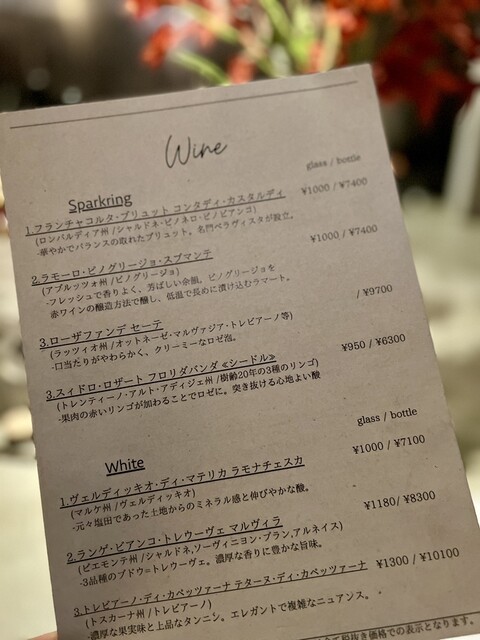 Wine
glass / bottle
Sparkring
1.フランチャコルタ・ブリュット コンタディ・カスタルディ ¥1000 / ¥7400
(ロンバルディア州 /シャルドネ・ピノネロ・ピノビアンコ)
-華やかでバランスの取れたブリュット。名門ベラヴィスタが設立。
2.ラモーロ・ピノグリージョ・スプマンテ ¥1000 / ¥7400
(アブルッツォ州 /ピノグリージョ)
-フレッシュで香りよく、芳ばしい余韻。ピノグリージョを
赤ワインの醸造方法で醸し、低温で長めに漬け込むラマート。
3.ローザファンデ セーテ / ¥9700
(ラッツィオ州 /オットネーゼ・マルヴァジア・トレビアーノ等)
-口当たりがやわらかく、クリーミーなロゼ泡。
3.スィドロ・ロザート フロリダバンダ ≪シードル≫ ¥950 / ¥6300
(トレンティーノ・アルト・アディジェ州 /樹齢20年の3種のリンゴ)
-果肉の赤いリンゴが加わることでロゼに。突き抜ける心地よい酸
glass / bottle
White
1.ヴェルディッキオ・ディ・マテリカ ラモナチェスカ ¥1000 / ¥7100
(マルケ州 /ヴェルディッキオ)
-元々塩田であった土地からのミネラル感と伸びやかな酸。
2.ランゲ・ビアンコ・トレウーヴェ マルヴィラ ¥1180/ ¥8300
(ピエモンテ州 /シャルドネ,ソーヴィニヨン・ブラン,アルネイス)
-3品種のブドウ=トレウーヴェ。濃厚な香りに豊かな旨味。
3.トレビアーノ・ディ・カペッツァーナ テヌータ・ディ・カペッツァーナ ¥1300 / ¥10100
(トスカーナ州 /トレビアーノ)
-濃厚な果実味と上品なタンニン。エレガントで複雑なニュアンス。
税抜き価格での表示となります。